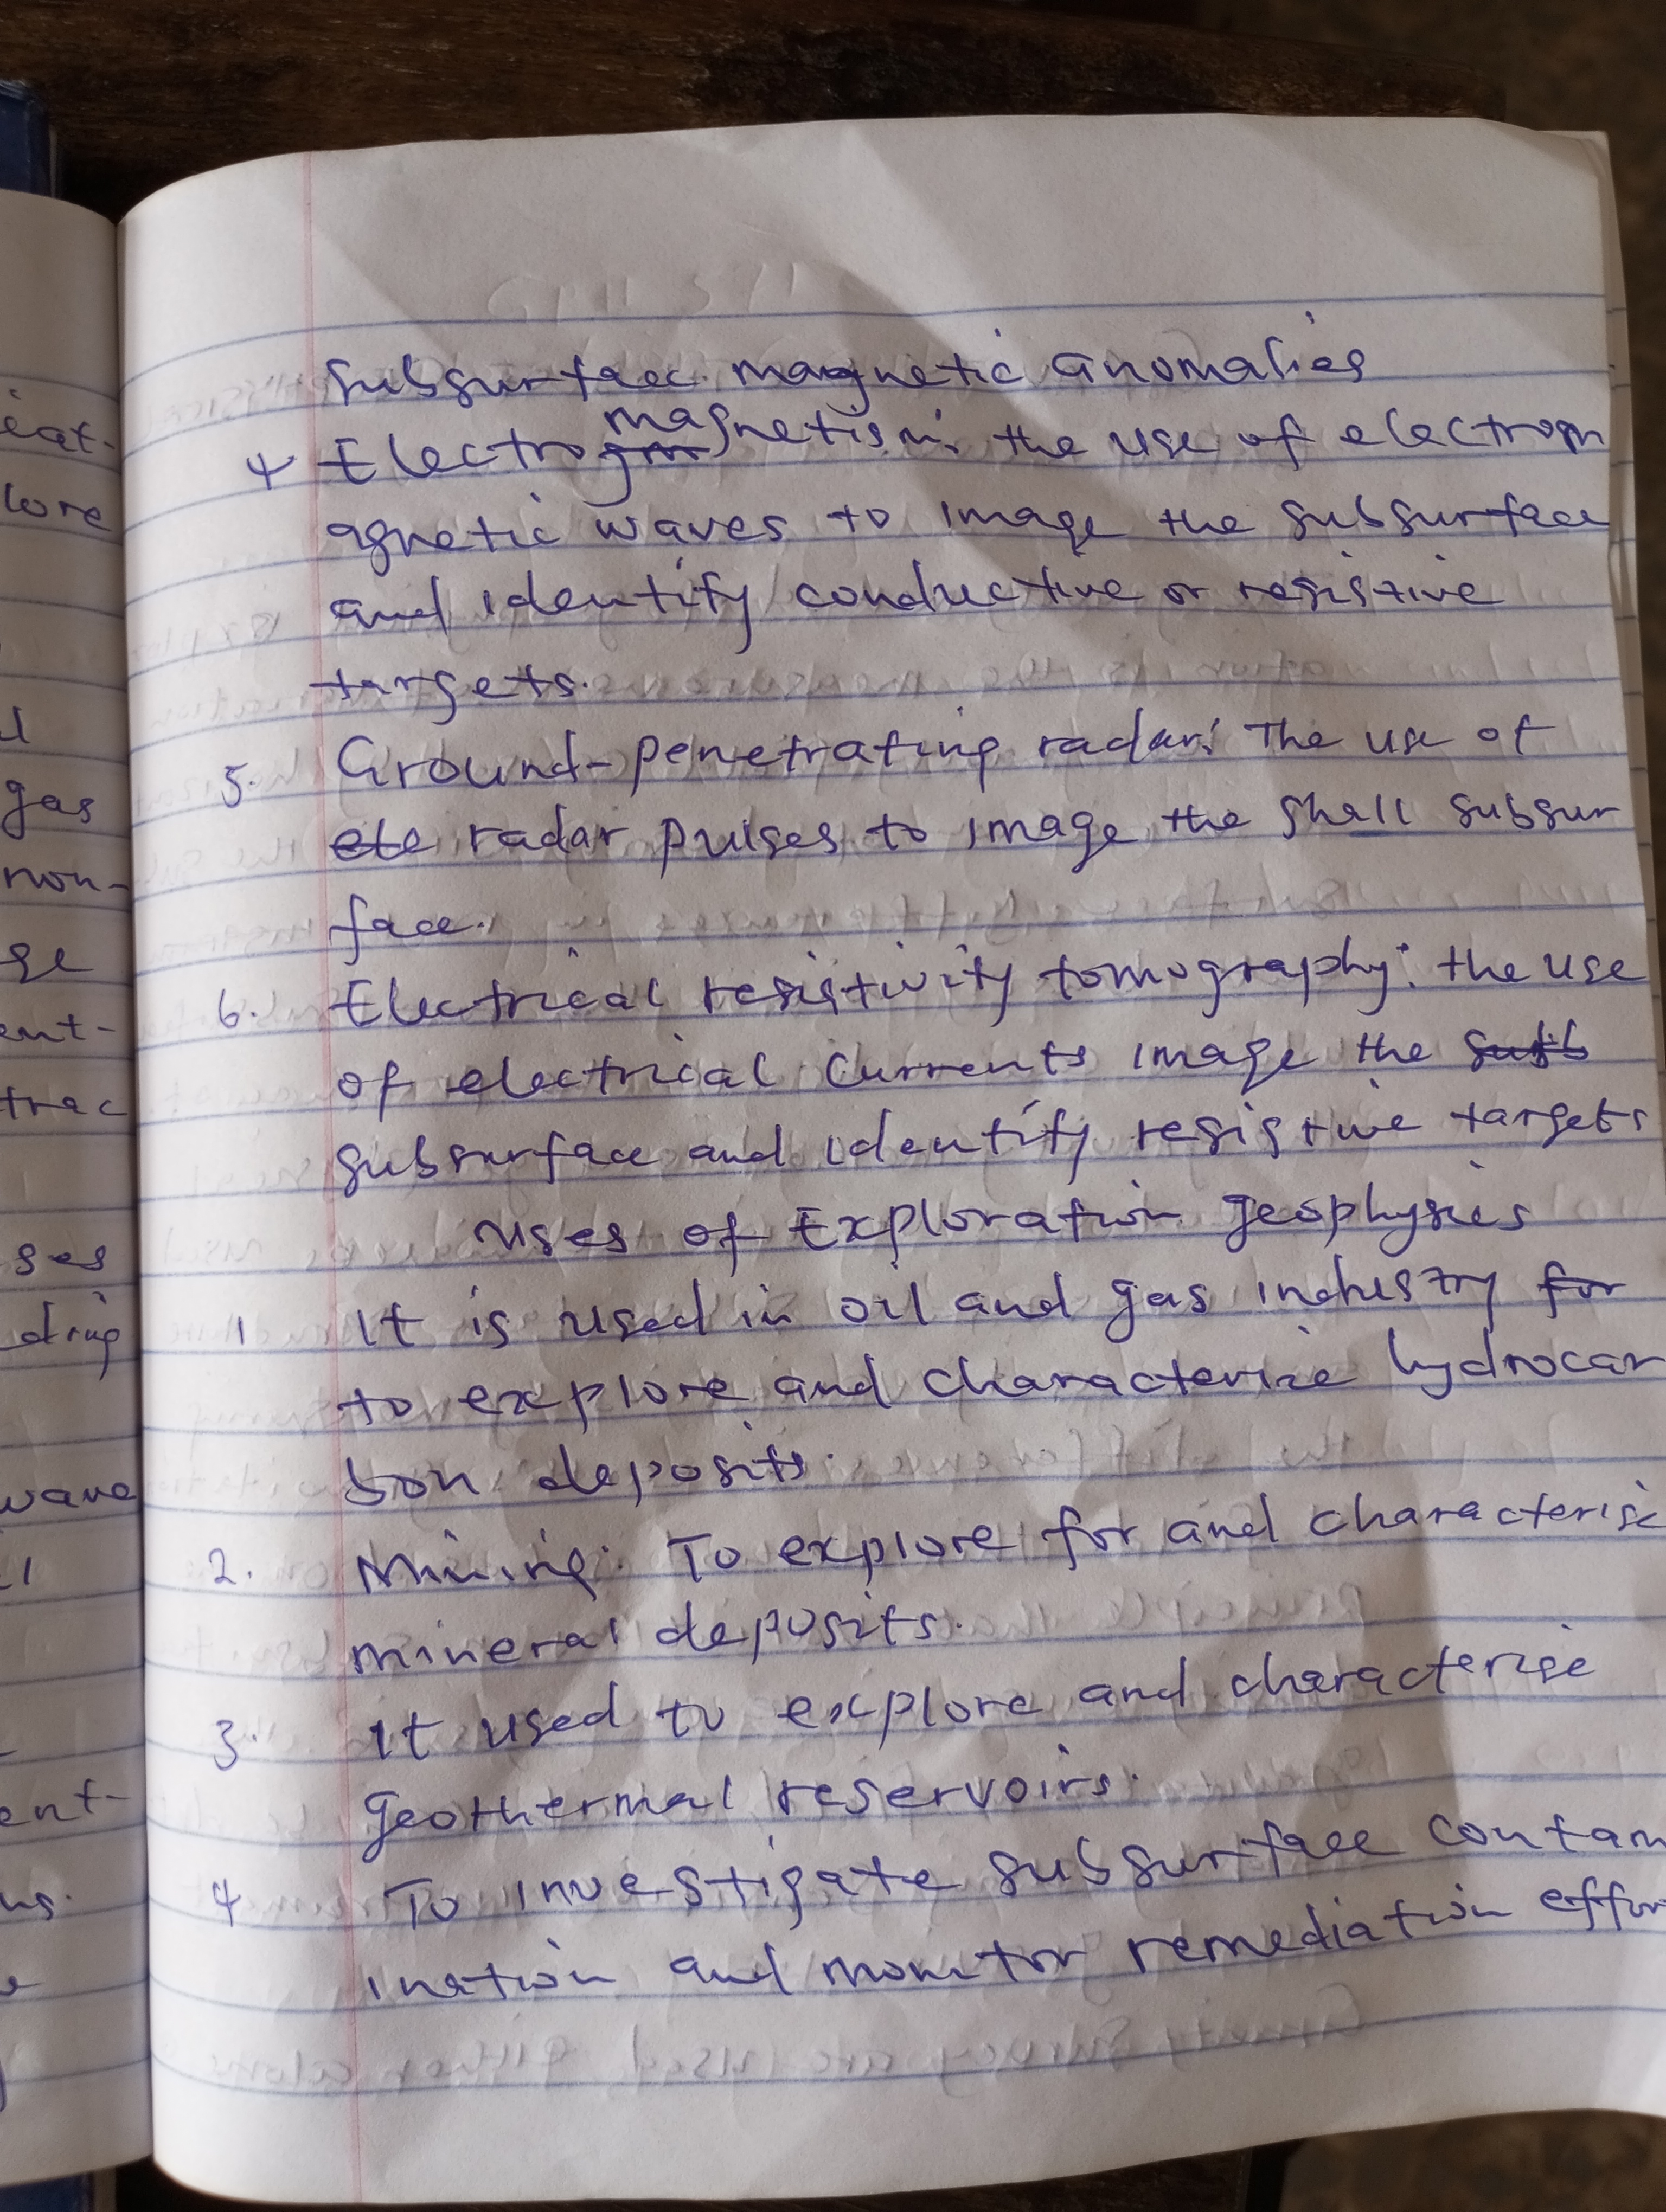 subsurface magnetic anomalies
4 Electromagnetism: the use of electrom
agnetic waves to image the subsurface
and identify conductive or resistive
targets.
5. Ground-penetrating radar: The use of
radar pulses to image the shall subsur
face.
6. Electrical resistivity tomography: the use
of electrical currents image the
subsurface and identify resistive targets
uses of Exploration geophysics
1 It is used in oil and gas industry for
to explore and characterize hydrocar
bon deposits.
2. Mining: To explore for and characterise
mineral deposits.
3. It used to explore and characterise
geothermal reservoirs.
4 To investigate subsurface contam
ination and monitor remediation effor
eat-
lore
gas
non-
ge
ent-
trac
ses
ding
wave
ent-